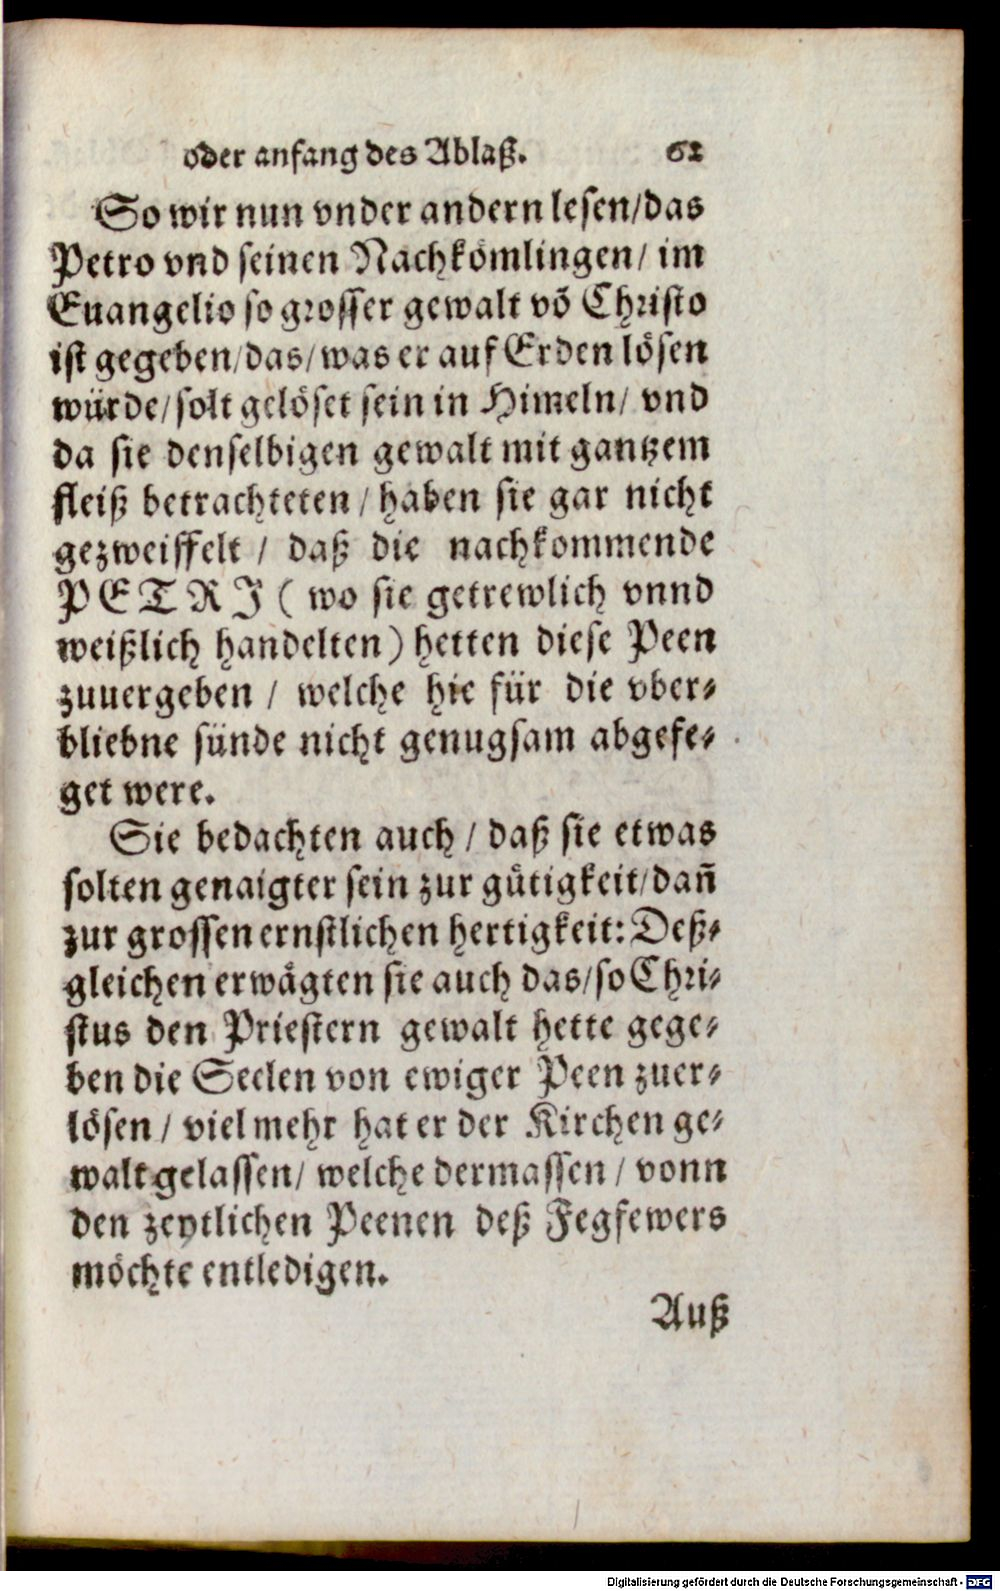 oder anfang des Ablaß. 62
So wir nun vnder andern lesen/das
Petro vnd seinen Nachkömlingen/ im
Euangelio so grosser gewalt võ Christo
ist gegeben/das/was er auf Erden lösen
würde/solt gelöset sein in Himeln/ vnd
da sie denselbigen gewalt mit gantzem
fleiß betrachteten/haben sie gar nicht
gezweiffelt / daß die nachkommende
PETRJ ( wo sie getrewlich vnnd
weißlich handelten) hetten diese Peen
zuuergeben / welche hie für die vber-
bliebne sünde nicht genugsam abgefe-
get were.
Sie bedachten auch / daß sie etwas
solten genaigter sein zur gütigkeit/dañ
zur grossen ernstlichen hertigkeit: Deß-
gleichen erwägten sie auch das/so Chri-
stus den Priestern gewalt hette gege-
ben die Seelen von ewiger Peen zuer-
lösen / viel mehr hat er der Kirchen ge-
walt gelassen/ welche dermassen / vonn
den zeytlichen Peenen deß Fegfewers
möchte entledigen.
Auß
Digitalisierung gefördert durch die Deutsche Forschungsgemeinschaft - DFG